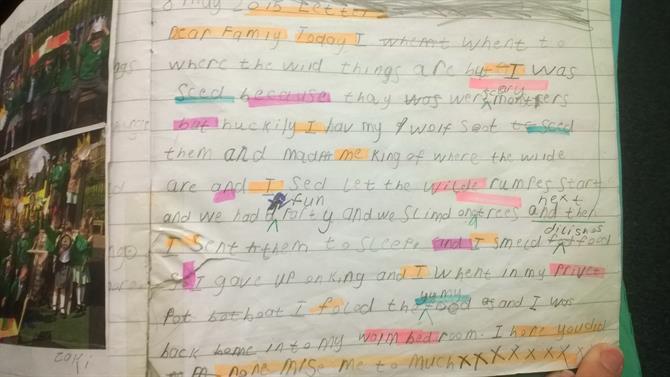 8 May 2015 Letter
Dear Family Today I whemt Whent to
where the wild things are but I was
Sced because thay was wer scary montsers
but huckily I hav my wolf Soot to sced
them and madm me King of where the wilde
are and I Sed Let the wilde rumpes Start
and we had a fun Party and we Slimd on trees and then next
I Sent h them to Sleepe and I smeld fot dilishas food
I gave up on King and I whent in my privet
Pot bot boat I foled the yumy food as and I was
back home in to my worm bed room. I hope you did
none mise me to muchxxxxxxxxx
zaki